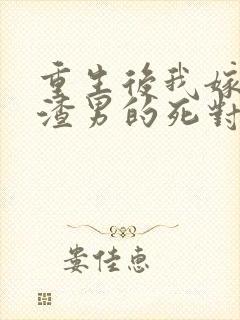 重生後我嫁
渣男的死對
娄佳惠